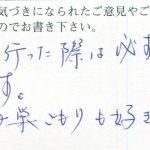 気づきになられたご意見やご
のでお書き下さい。
行った際は必ず
す。
巣ごもりも好き